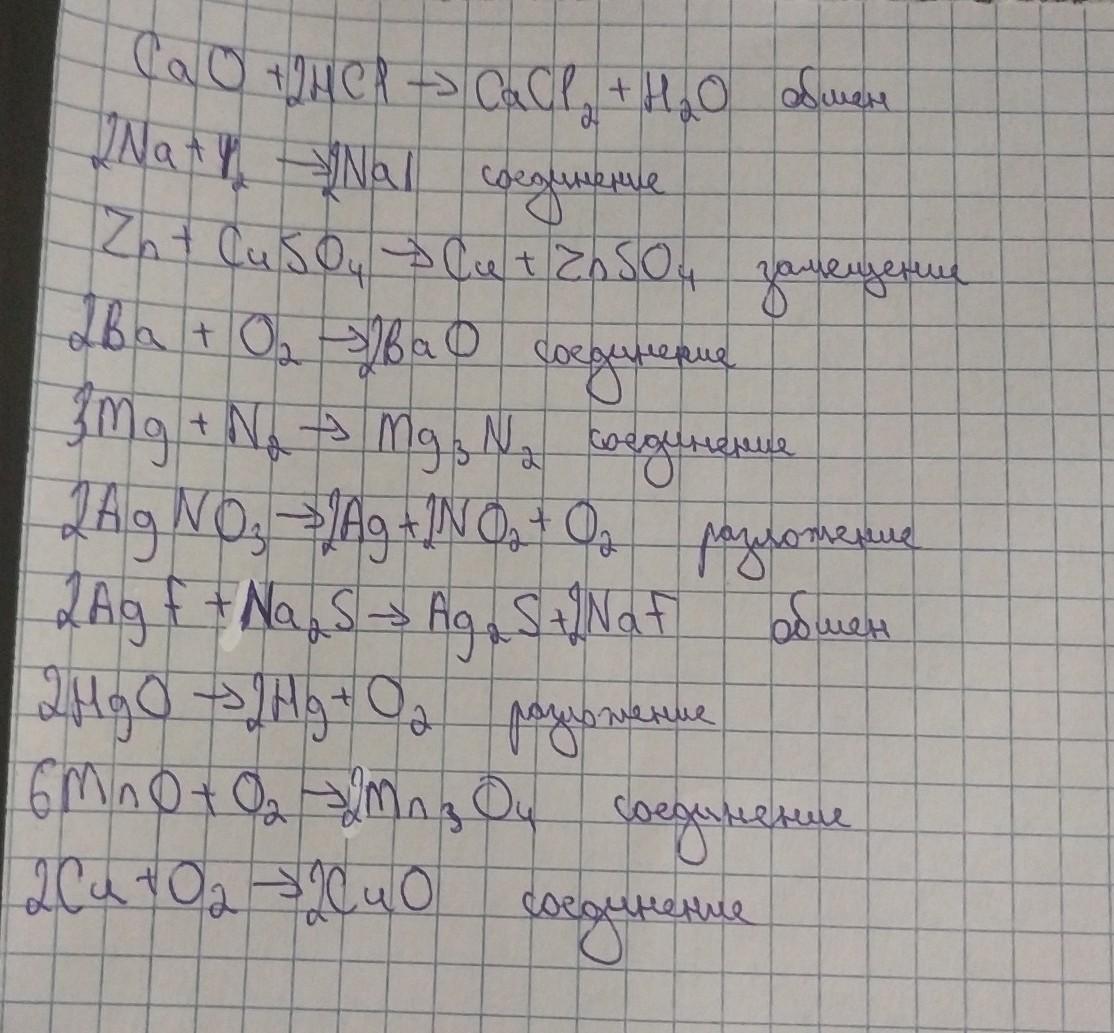 CaO + 2HCl → CaCl₂ + H₂O обмен
2Na + I₂ → 2NaI соединение
Zn + CuSO₄ → Cu + ZnSO₄ замещение
2Ba + O₂ → 2BaO соединение
3Mg + N₂ → Mg₃N₂ соединение
2AgNO₃ → 2Ag + 2NO₂ + O₂ разложение
2AgF + Na₂S → Ag₂S + 2NaF обмен
2HgO → 2Hg + O₂ разложение
6MnO + O₂ → 2Mn₃O₄ соединение
2Cu + O₂ → 2CuO соединение